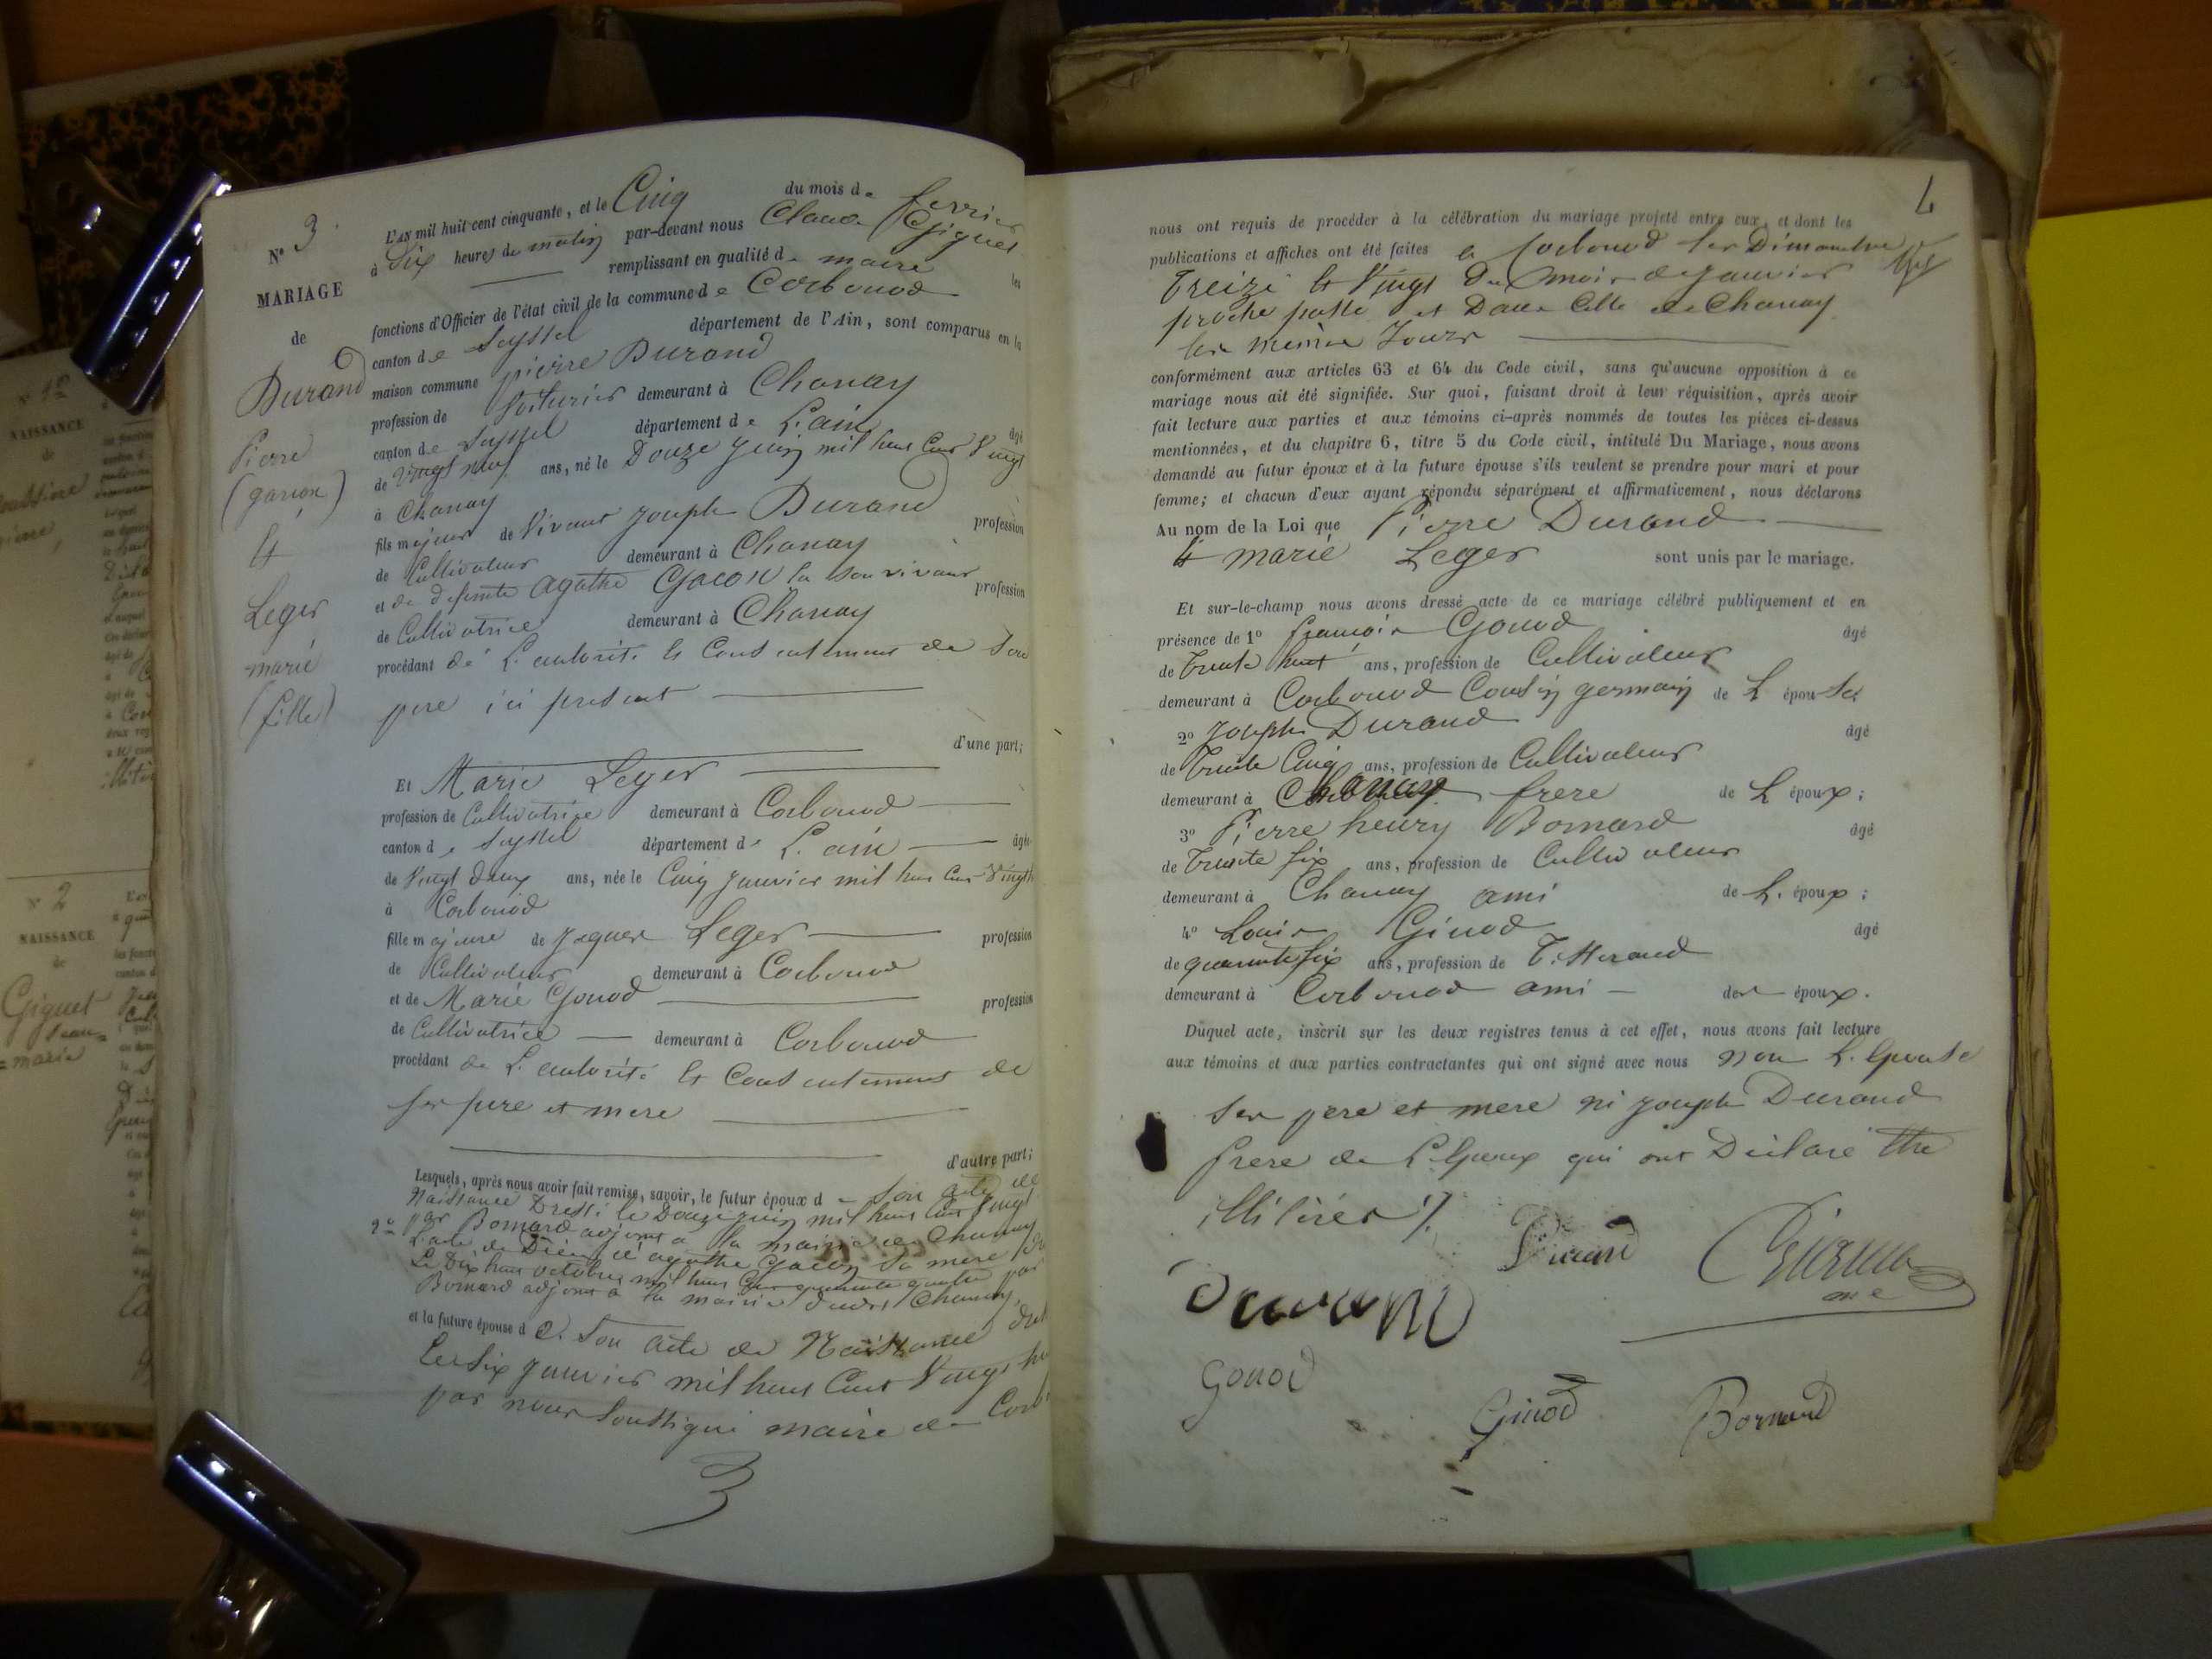 N° 3
MARIAGE
de
Durand
Pierre
(garçon)
&
Leger
marie
(fille)
L'an mil huit cent cinquante, et le Cinq du mois de fevrier
à Dix heures du matin par-devant nous Claude Giguet
remplissant en qualité de maire les
fonctions d'Officier de l'état civil de la commune de Corbonod
canton de Seyssel département de l'Ain, sont comparus en la
maison commune pierre Durand
profession de Voiturier demeurant à Chanay
canton de Seyssel département de L'ain âgé
de Vingt neuf ans, né le Douze juin mil huit Cent Vingt
à Chanay
fils majeur de Vivant joseph Durand profession
de Cultivateur demeurant à Chanay
et de defunte Agathe Gacon la son vivant profession
de Cultivatrice demeurant à Chanay
procédant de L'autorité et Consentement de son
pere ici present
d'une part;
Et Marie Leger
profession de Cultivatrice demeurant à Corbonod
canton de Seyssel département de L'ain âgée
de Vingt deux ans, née le Cinq janvier mil huit Cent Vingt h
à Corbonod
fille majeure de Jaques Leger profession
de Cultivateur demeurant à Corbonod
et de Marie Gonod profession
de Cultivatrice demeurant à Corbonod
procédant de L'autorité et Consentement de
ses pere et mere
d'autre part;
Lesquels, après nous avoir fait remise, savoir, le futur époux de son acte de
Naissance Dressé le Douze juin mil huit Cent Vingt
par Bornard adjoint a la mairie de Chanay
2° L'acte de Décès d'agathe Gacon sa mere
Le Dix huit octobre mil huit Cent quarante quatre par
Bornard adjoint a la mairie dudit Chanay,
et la future épouse de Son acte de Naissance
Le Six janvier mil huit Cent Vingt hu
par nous Soussigné maire de Corb
3
4
nous ont requis de procéder à la célébration du mariage projeté entre eux, et dont les
publications et affiches ont été faites a Corbonod les Dimanche
Treize et Vingt Du mois de janvier
proche passé et Dans Celle de Chanay
les même Jours
conformément aux articles 63 et 64 du Code civil, sans qu'aucune opposition à ce
mariage nous ait été signifiée. Sur quoi, faisant droit à leur réquisition, après avoir
fait lecture aux parties et aux témoins ci-après nommés de toutes les pièces ci-dessus
mentionnées, et du chapitre 6, titre 5 du Code civil, intitulé Du Mariage, nous avons
demandé au futur époux et à la future épouse s'ils veulent se prendre pour mari et pour
femme; et chacun d'eux ayant répondu séparément et affirmativement, nous déclarons
Au nom de la Loi que Pierre Durand
& marie Leger sont unis par le mariage.
Et sur-le-champ nous avons dressé acte de ce mariage célébré publiquement et en
présence de 1° françois Gonod âgé
de Trente huit ans, profession de Cultivateur
demeurant à Corbonod Cousin germain de L épouse
2° joseph Durand âgé
de Trente Cinq ans, profession de Cultivateur
demeurant à Chanay frere de L époux;
3° Pierre henry Bornard âgé
de Trente Six ans, profession de Cultivateur
demeurant à Chanay ami de L. époux;
4° Louis Ginod âgé
de quarante six ans, profession de Tisserand
demeurant à Corbonod ami des époux.
Duquel acte, inscrit sur les deux registres tenus à cet effet, nous avons fait lecture
aux témoins et aux parties contractantes qui ont signé avec nous non L. Epouse
ses pere et mere ni joseph Durand
frere de L'Epoux qui ont Déclaré être
illitérés ./.
Durand
Durand
Gonod
Ginod
Bornard
N° 2
NAISSANCE
de
Giguet
Jean=
=marie
NAISSANCE